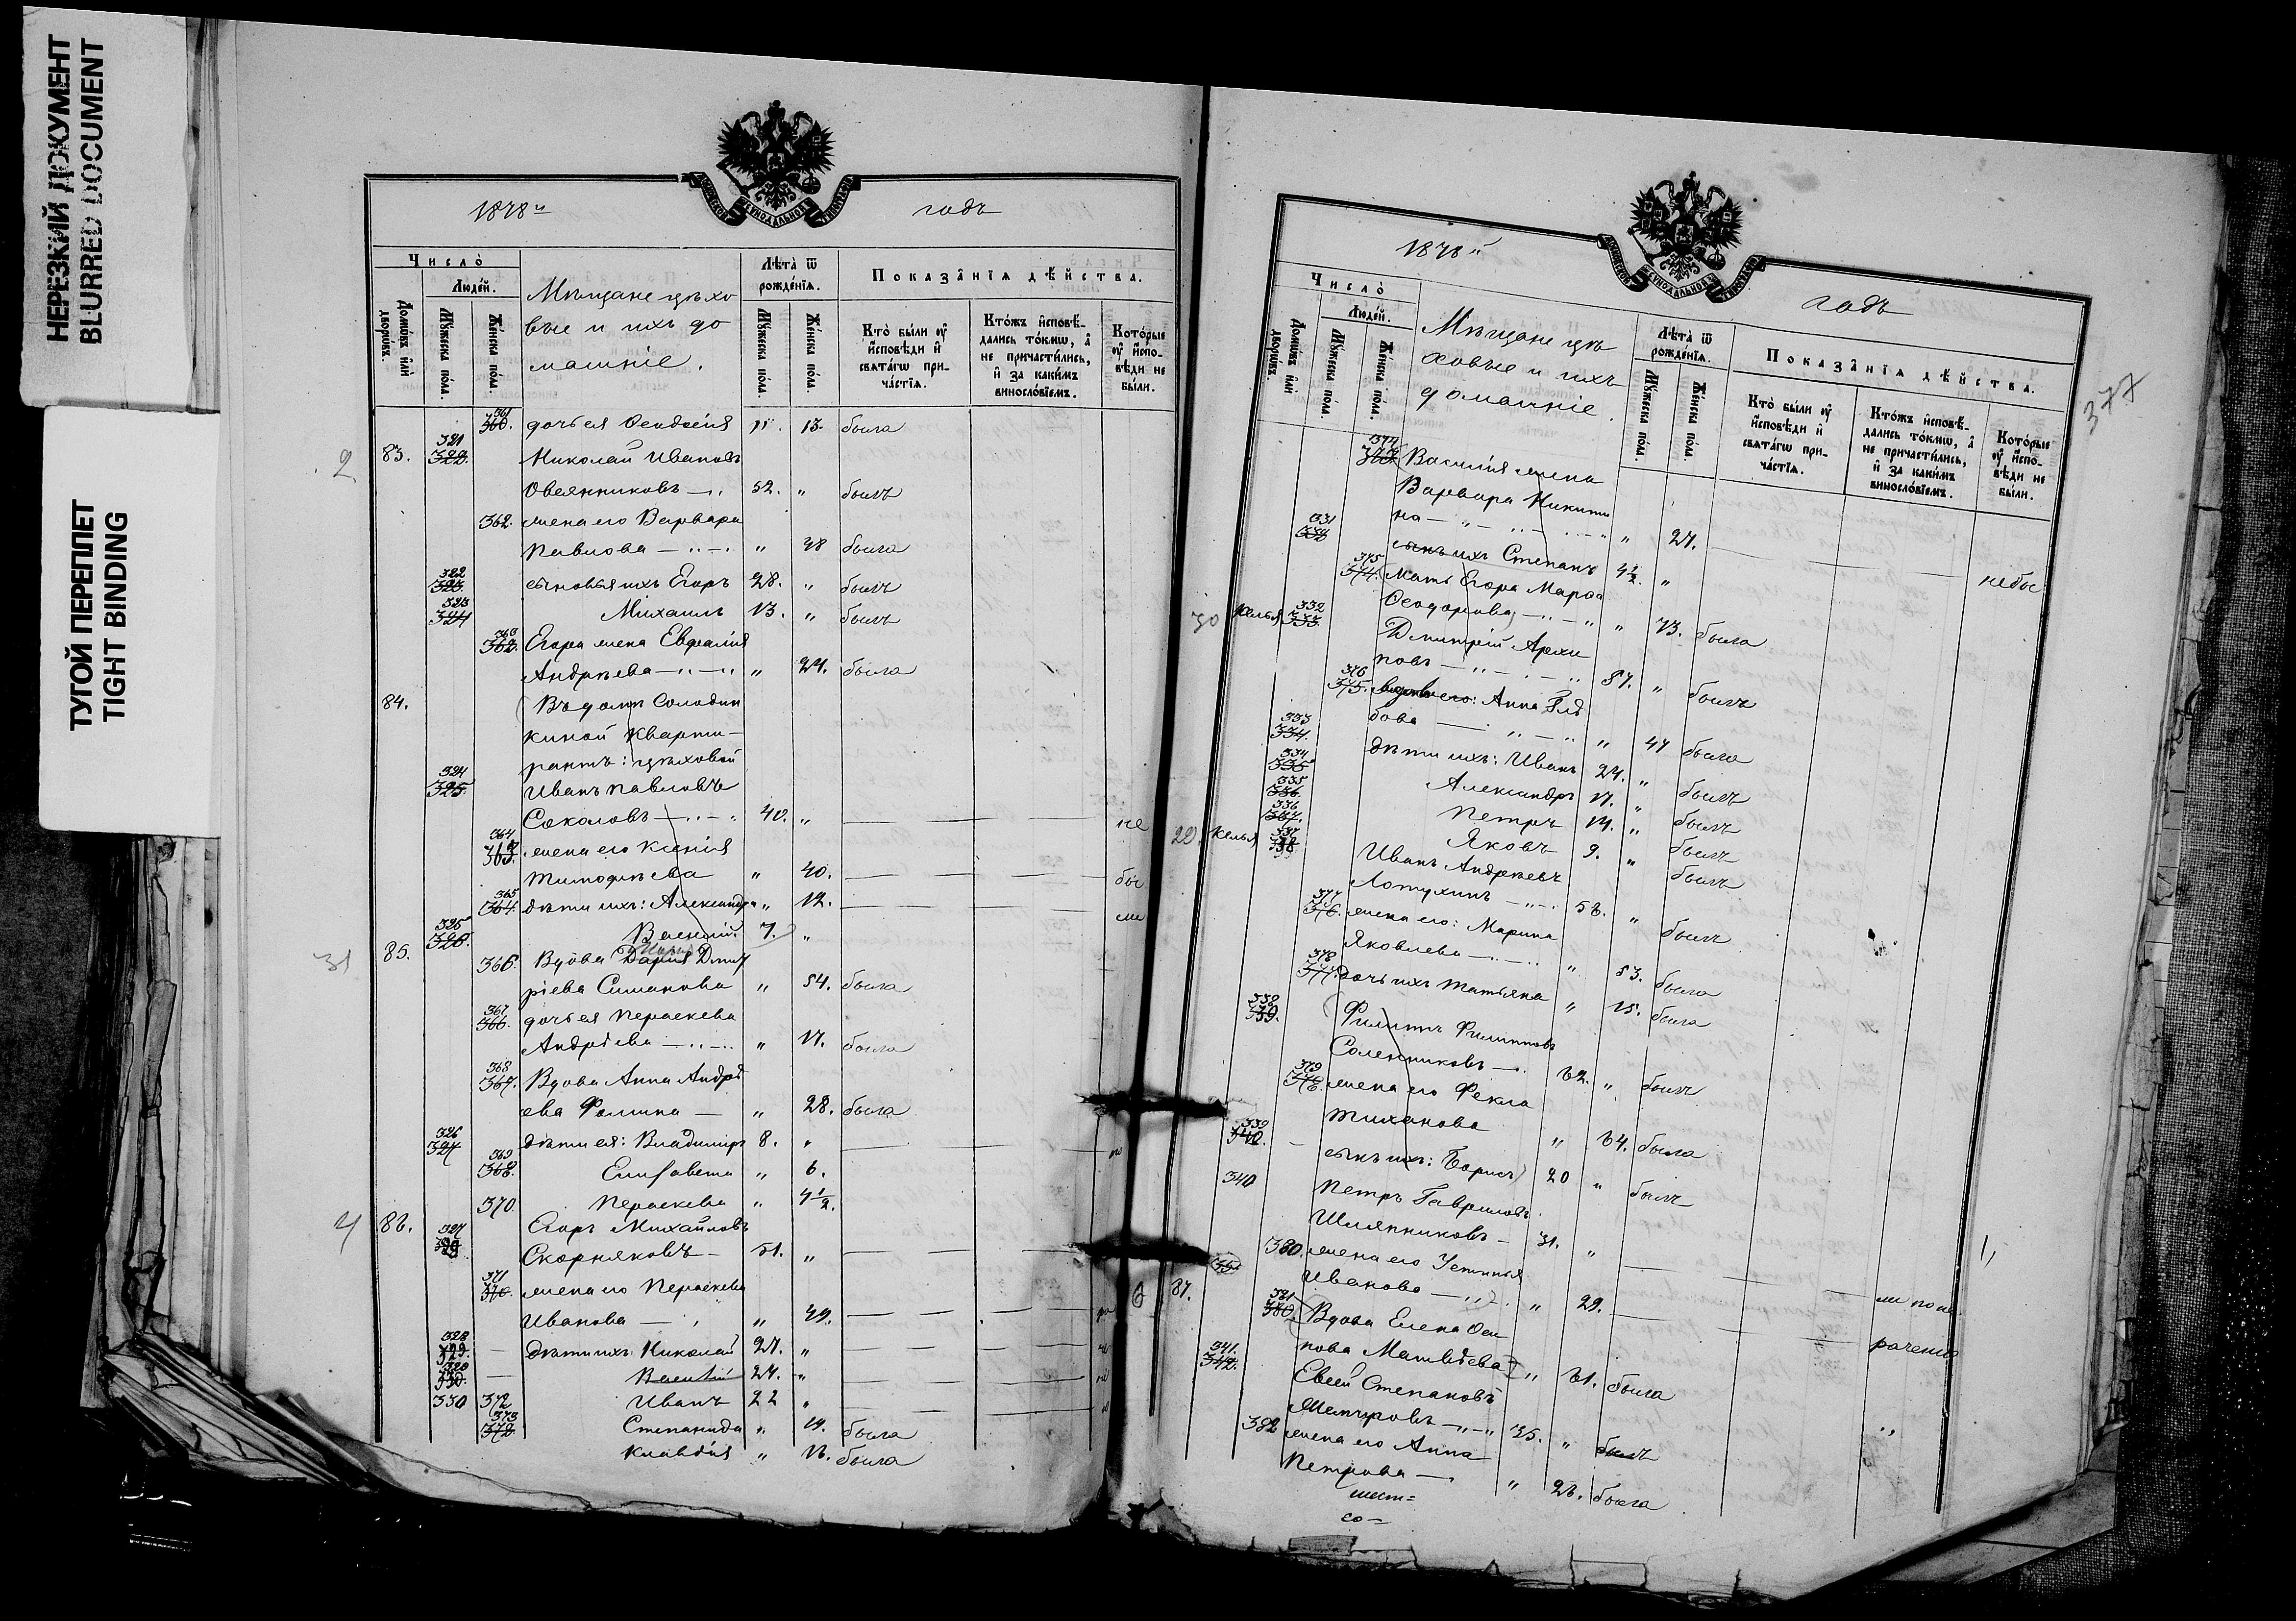 НЕРЕЗКИЙ ДОКУМЕНТ
BLURRED DOCUMENT
ТУГОЙ ПЕРЕПЛЕТ
TIGHT BINDING
1878й годъ
Число̀
Люде́й.
Домѡ́въ и҆лѝ дворѡ́въ.
Мꙋ́жеска по́ла.
Же́нска по́ла.
Мѣщане цѣхо
вые и ихъ до
машніе.
Лѣ́та ѿ рожде́нїѧ.
Мꙋ́жеска по́ла.
Же́нска по́ла.
Показа̑нїѧ дѣ́йства.
Кто̀ бы́ли ᲂу҆ и҆сповѣди и҆ свѧта́гѡ прича́стїѧ.
Кто́жъ и҆сповѣ́дались то́кмѡ, а҆ не причасти́лись, и҆ за каки́мъ винослові́емъ.
Кото́рые ᲂу҆ и҆сповѣди не бы́ли.
361 360. дочь ея 13. была
2 83. 321 322. Николай Ивановъ
Овсянниковъ 52. " былъ
362. жена его Варвара
Павлова " 48 была
322 323. сыновья ихъ Егоръ 28. " былъ
323 324 Михаилъ 13. " былъ
363 362. Егора жена Евфалія
Андрѣева " 27. была
84. Въ домѣ Солодин
киной кварти-
рантъ: цѣховой
324 325. Иванъ Павловъ
Соколовъ 40. " не
364 363. жена его Ксенія
Тимофѣева " 40. бы
365 364. дѣти ихъ: Александра " 12. ли
325 326. Василій. 7. "
31 85. 366. Вдова Дарія Дмит
ріева Симакова " 54. была
367 366. дочь ея Пераскева
Андрѣева " 17. была
368 367. Вдова Анна Андрѣ
ева Фомина " 28. была
326 327 дѣти ея: Владиміръ 8. "
369 368. Елизавета " 6.
370. Пераскева " 4½.
4 86. 327 Егоръ Михайловъ
Скорняковъ 51. "
371 370. жена его Пераскева
Иванова " 49.
328 329. дѣти ихъ: Николай 27. "
329 330. Василій 24. "
330 372 Иванъ 22 "
373 372 Степанида " была
Клавдія " 16. была
1878й годъ
377
Число̀
Люде́й.
Домѡ́въ и҆лѝ дворѡ́въ.
Мꙋ́жеска по́ла.
Же́нска по́ла.
Мѣщане цѣ
ховые и ихъ
домашніе.
Лѣ́та ѿ рожде́нїѧ.
Мꙋ́жеска по́ла.
Же́нска по́ла.
Показа̑нїѧ дѣ́йства.
Кто̀ бы́ли ᲂу҆ и҆сповѣди и҆ свѧта́гѡ прича́стїѧ.
Кто́жъ и҆сповѣ́дались то́кмѡ, а҆ не причасти́лись, и҆ за каки́мъ винослові́емъ.
Кото́рые ᲂу҆ и҆сповѣди не бы́ли.
374 373 Василія жена
Варвара Никити
на " 27. небы
331 332 сынъ ихъ Степанъ 4½. "
375 374. Мать Егора Марфа
Ѳеодорова " 73. была
30 келья 332 333. Дмитрій Архи
повъ 57. " былъ
376 375. его: Анна Глѣ
бова " 47 была
333 334. дѣти ихъ: Иванъ 27. " былъ
334 335 Александръ 17. " былъ
335 336. Петръ 14. " былъ
336 337. Яковъ 9. " былъ
20. келья 337 338 Иванъ Андрѣевъ
Лопухинъ 56. " былъ
377 376. жена его: Марина
Яковлева " 53. была
378 377. дочь ихъ Татьяна " 15. была
338 339. Филиппъ Филипповъ
Соленниковъ 62. " былъ
379 378. жена его Фекла
Тихонова " 64. была
339 340. сынъ ихъ: Борисъ 20 " былъ
340 Петръ Гавриловъ
Шляпниковъ 31. "
380. жена его Устинья
Иванова " 29. ли по не
6 87. 381 380. Вдова Елена Оси
пова Матвѣева " 61. была раченію
341. 342. Евсей Степановъ
35. " былъ
382 жена его Анна
Петрова " 26. была
шест=
со-